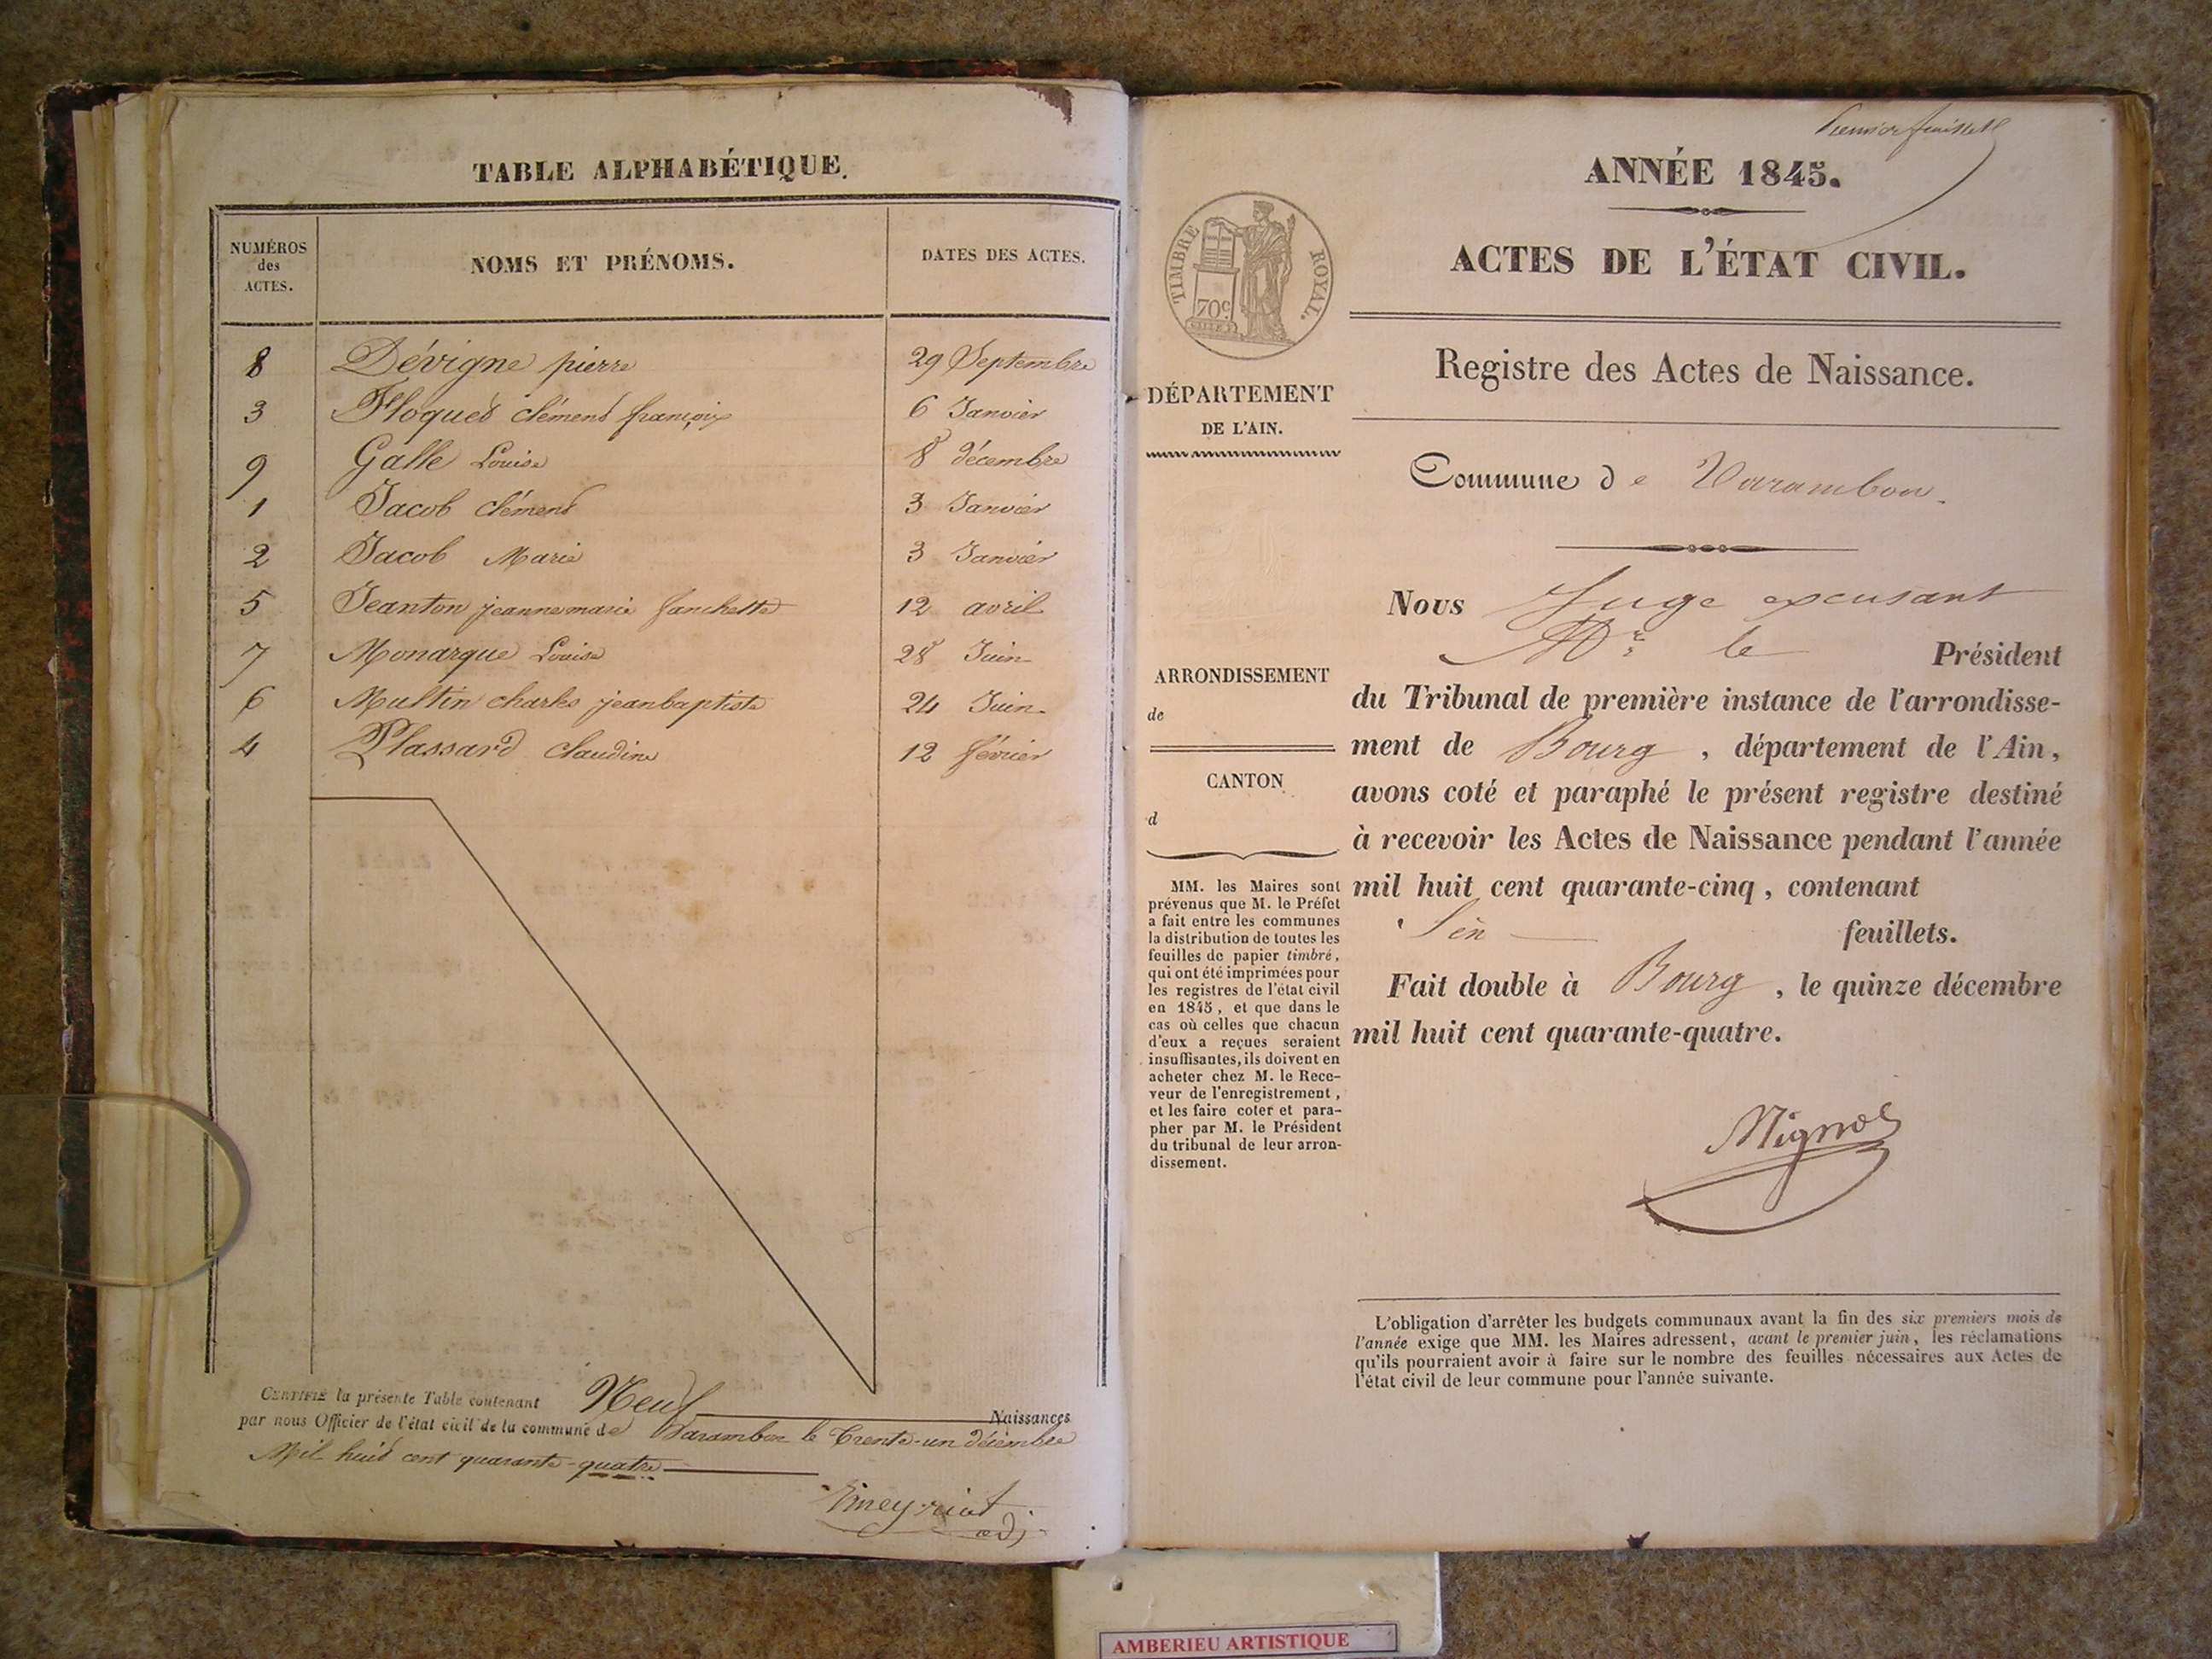 TABLE ALPHABÉTIQUE.
NUMÉROS des ACTES.
NOMS ET PRÉNOMS.
DATES DES ACTES.
8 Dévigne pierre 29 Septembre
3 Floqued clémend françois 6 Janvier
9 Galle Louise 8 décembre
1 Jacob clémend 3 Janvier
2 Jacob Marie 3 Janvier
5 Jeanton jeannemarie fanchette 12 avril
7 Monarque Louise 28 Juin
6 Multin charles jeanbaptiste 24 Juin
4 Plassard claudine 12 février
CERTIFIÉ la présente Table contenant Neuf Naissances
par nous Officier de l'état civil de la commune de Varambon le Trente-un décembre
Mil huit cent quarante-quatre
adj.
Premier feuillet
ANNÉE 1845.
ACTES DE L'ÉTAT CIVIL.
TIMBRE ROYAL.
70c
Registre des Actes de Naissance.
DÉPARTEMENT
DE L'AIN.
Commune de Varambon.
ARRONDISSEMENT
de
CANTON
d
MM. les Maires sont
prévenus que M. le Préfet
a fait entre les communes
la distribution de toutes les
feuilles de papier timbré,
qui ont été imprimées pour
les registres de l'état civil
en 1845, et que dans le
cas où celles que chacun
d'eux a reçues seraient
insuffisantes, ils doivent en
acheter chez M. le Rece-
veur de l'enregistrement,
et les faire coter et para-
pher par M. le Président
du tribunal de leur arron-
dissement.
Nous Juge excusant
Mr. le Président
du Tribunal de première instance de l'arrondisse-
ment de Bourg, département de l'Ain,
avons coté et paraphé le présent registre destiné
à recevoir les Actes de Naissance pendant l'année
mil huit cent quarante-cinq, contenant
feuillets.
Fait double à Bourg, le quinze décembre
mil huit cent quarante-quatre.
Mignot
L'obligation d'arrêter les budgets communaux avant la fin des six premiers mois de
l'année exige que MM. les Maires adressent, avant le premier juin, les réclamations
qu'ils pourraient avoir à faire sur le nombre des feuilles nécessaires aux Actes de
l'état civil de leur commune pour l'année suivante.
AMBERIEU ARTISTIQUE